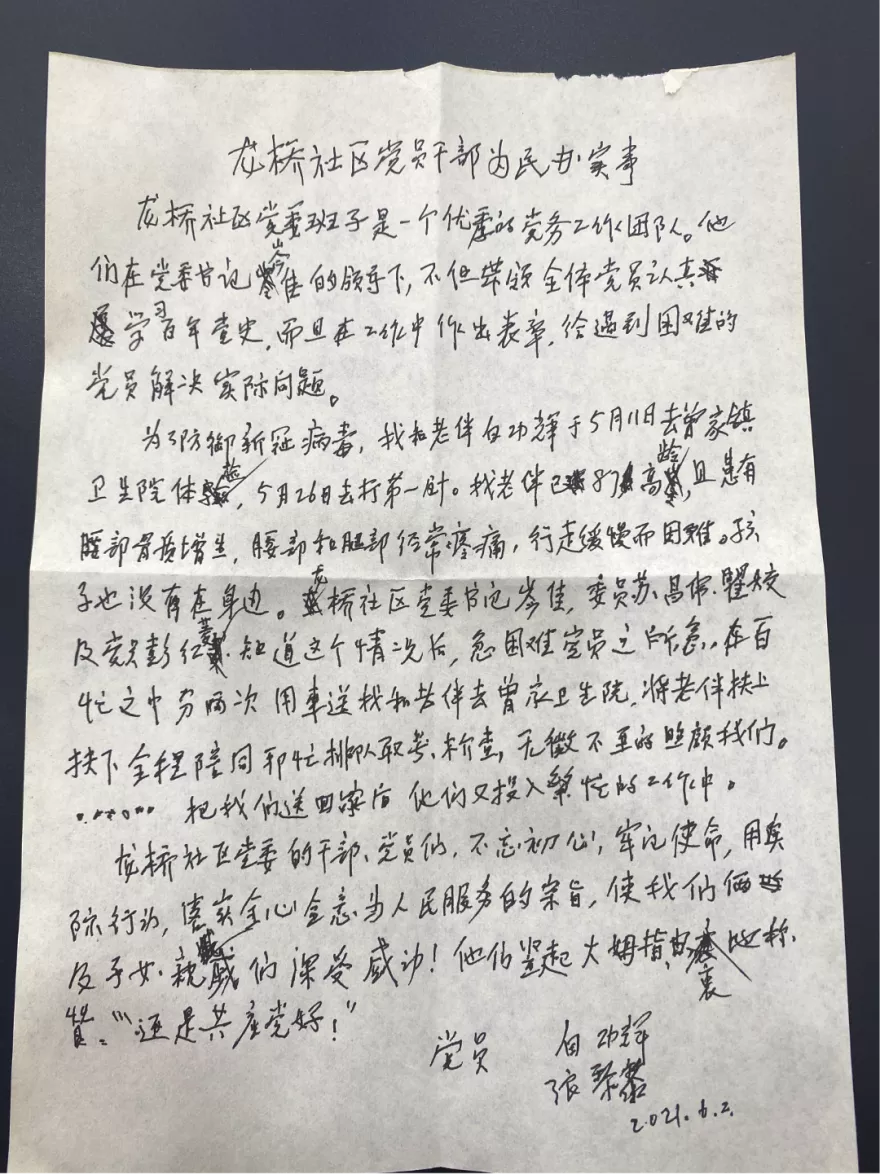 龙桥社区党员干部为民办实事
龙桥社区党委班子是一个优秀的党务工作团队。他
们在党委书记岑佳的领导下,不但带领全体党员认真
学习百年党史,而且在工作中作出表率,给遇到困难的
党员解决实际问题。
为了防御新冠病毒,我和老伴白功辉于5月11日去曾家镇
卫生院体检,5月26日去打第一针。我老伴已87高龄,且患有
腰部骨质增生,腰部和腿部经常疼痛,行走缓慢而困难。孩
子也没有在身边。龙桥社区党委书记岑佳,委员苏昌伟、瞿姣
及党员彭红 知道这个情况后,急困难党员之所急,在百
忙之中分两次用車送我和老伴去曾家卫生院,将老伴扶上
扶下全程陪同帮忙排队取号、检查,无微不至的照顾我们。
…… 把我们送回家后他们又投入繁忙的工作中。
龙桥社区党委的干部、党员们,不忘初心,牢记使命,用实
际行动,落实全心全意为人民服务的宗旨,使我们俩
及子女、亲戚们深受感动!他们竖起大姆指,由衷地称
赞:“还是共产党好!”
党员 白功辉
张
2021.6.2.